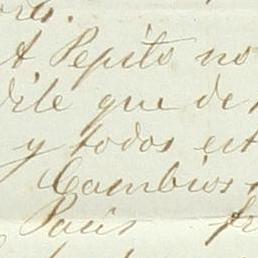 A Pepito no
dile que de
y todos est
Cambios
Paris fr